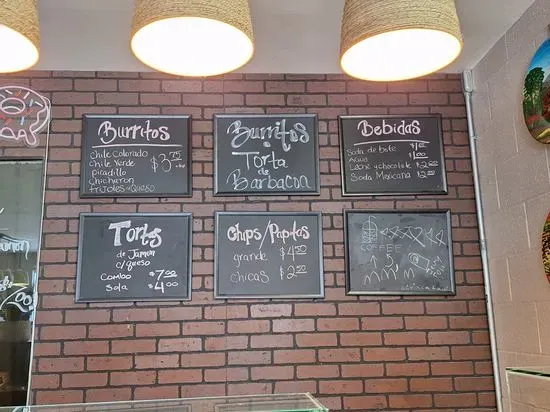 Burritos
Chile Colorado
Chile Verde
picadillo
chicharon
Frijoles y Queso
$3.75
Burritos
Torta
de
Barbacoa
Bebidas
Soda de bote $1.00
Agua $1.00
Leche y chocolate $2.00
Soda Mexicana $2.00
Torts
de Jamon
c/queso
Combo $7.00
Sola $4.00
Chips/Papitas
grande $4.50
chicas $2.50
COFFEE